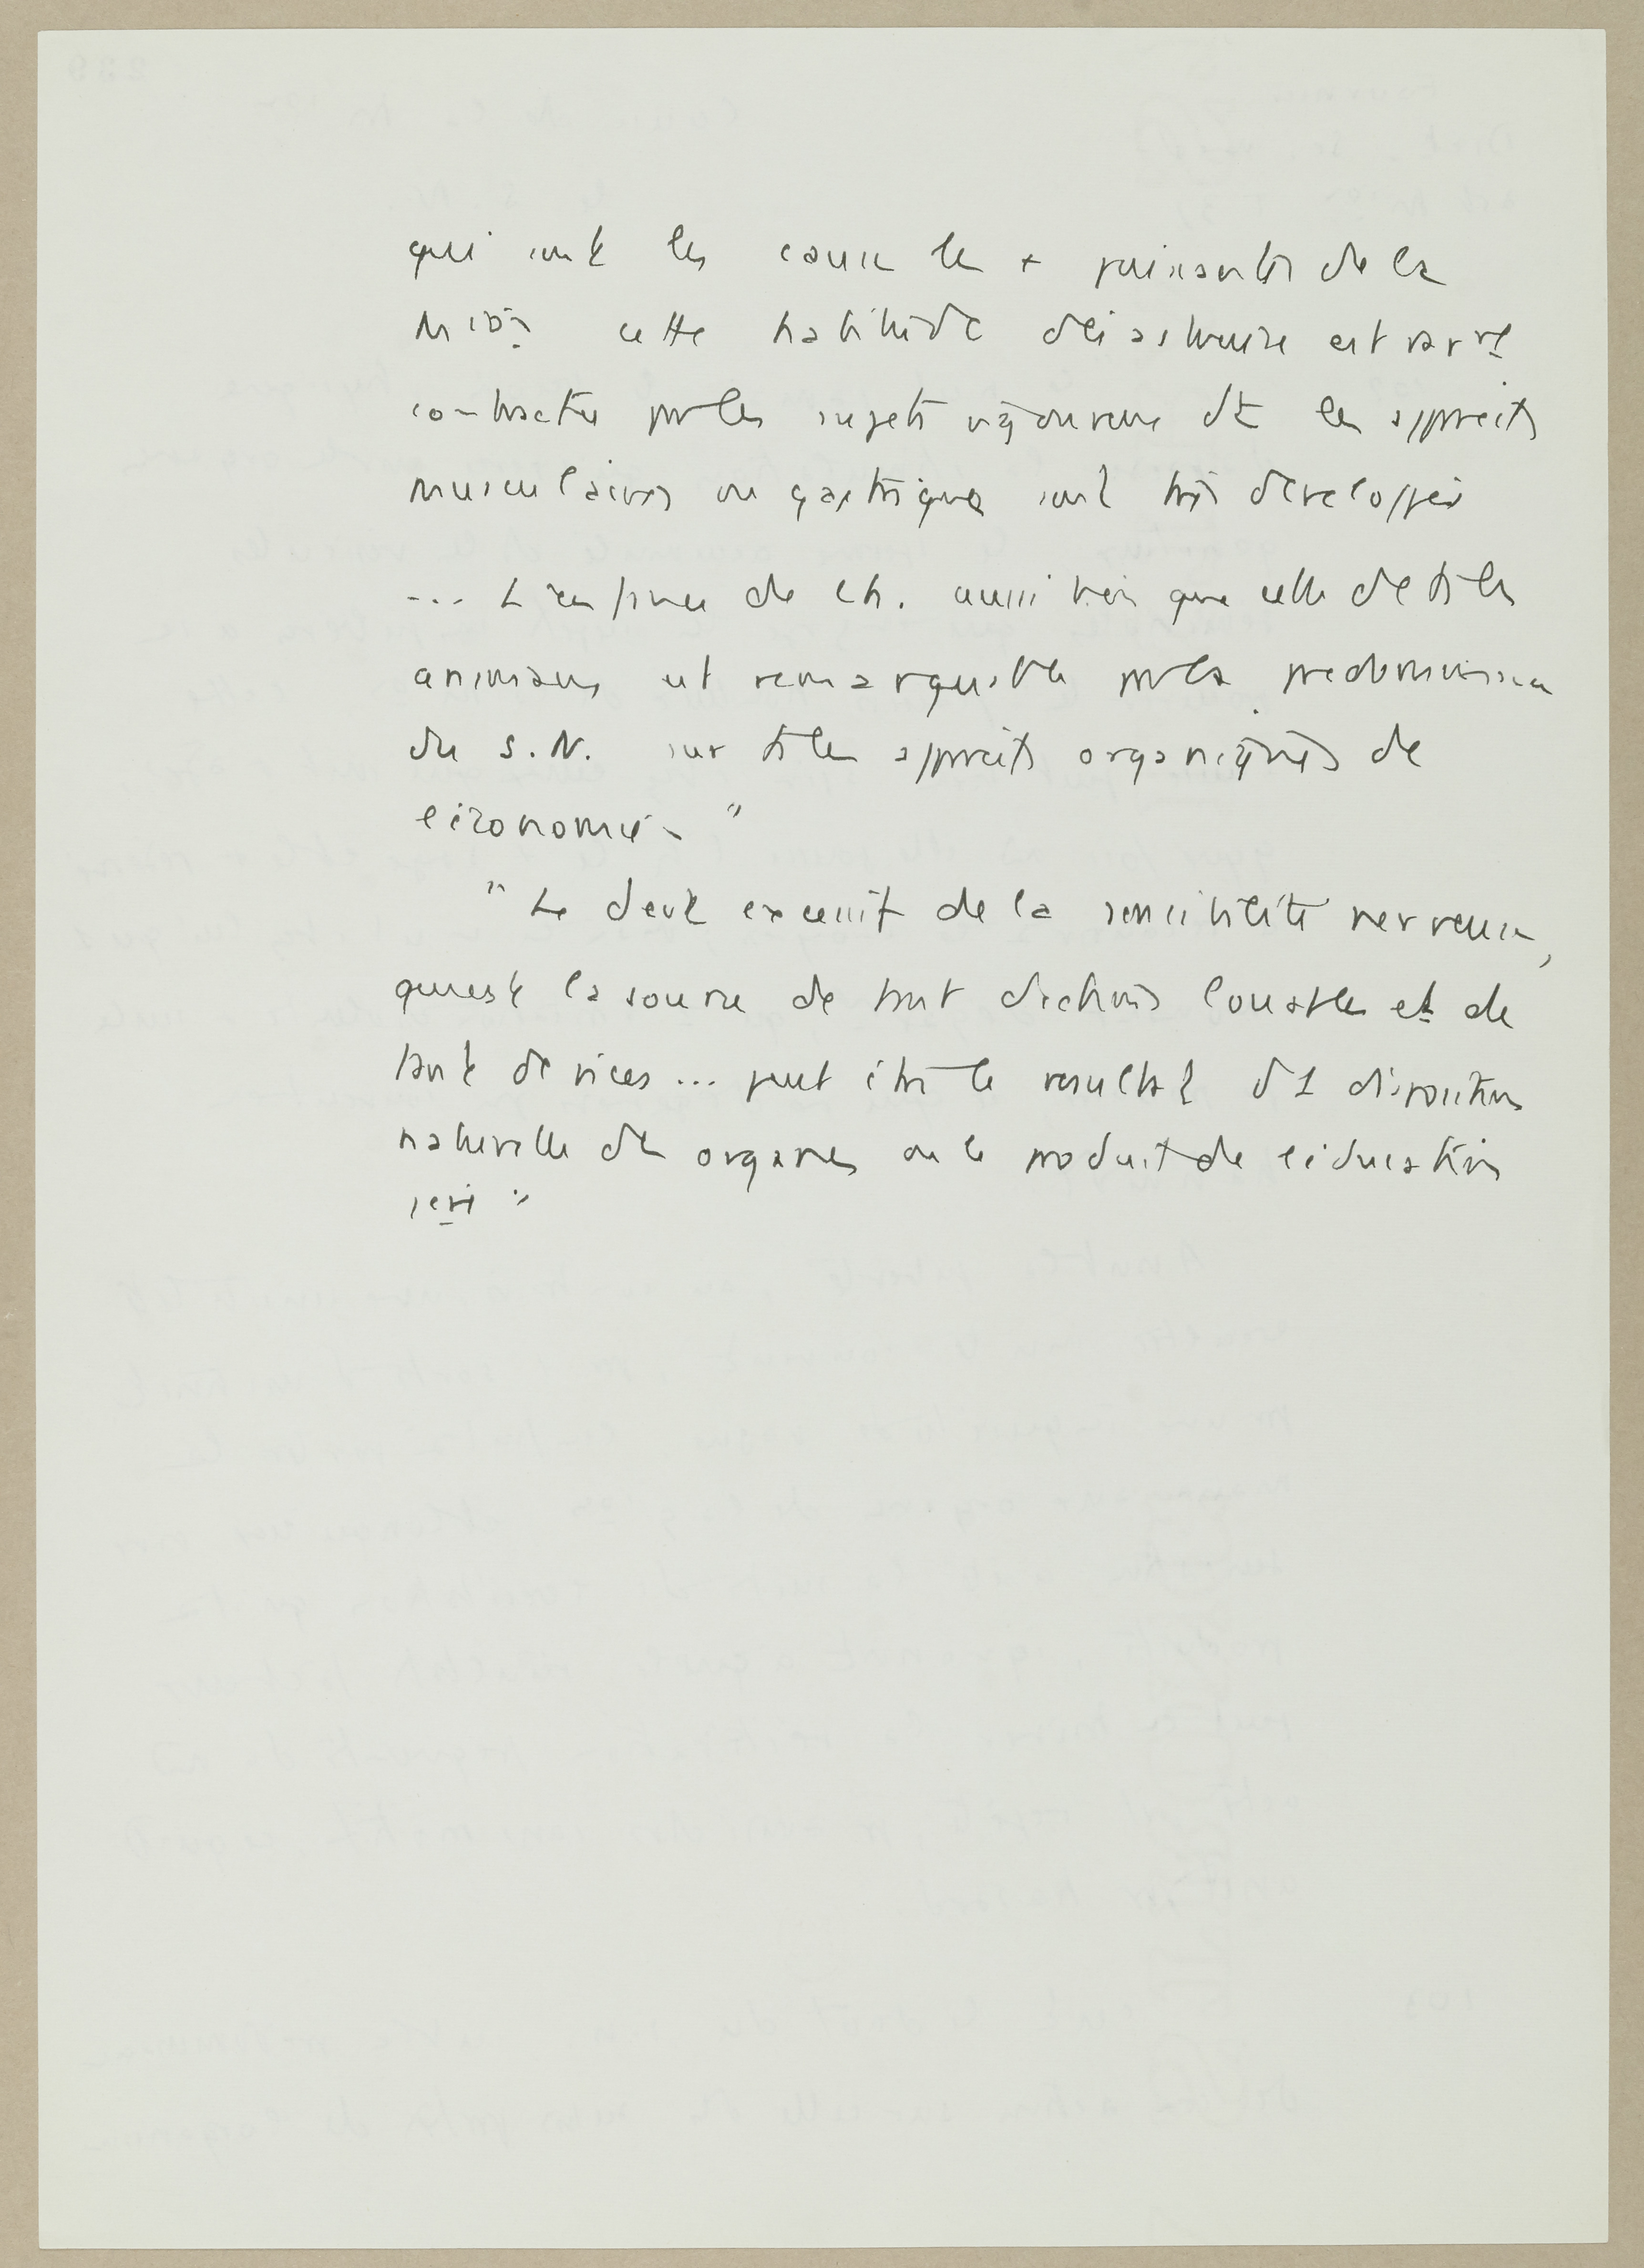 qui sont les causes les + puissantes de la
M ion cette habitude désastreuse est rart
contractée par les sujets vigoureux dt les appareils
musculaires ou gastriques sont très développés
... L'espèce de ch. aussi bien que celle de ts les
animaux est remarquable par la prédominance
du S.N. sur ts les appareils organiques de
l'économie. "
" Le devt excessif de la sensibilité nerveuse,
qui est la source de tant d'actions louables et de
tant de vices... peut être le résultat d'1 disposition
naturelle des organes ou le produit de l'éducation